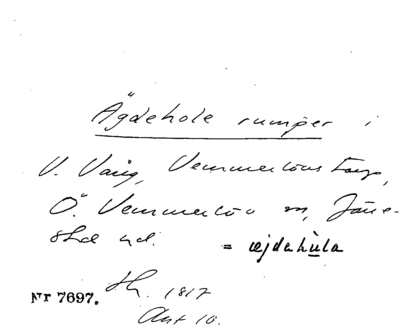 Ägdehole rumper i
V. Vång, Vemmerlövs torp,
Ö. Vemmerlöv m, Järre-
stad hd. = æjdahùla
Nr 7697. Sk. 1817
Akt 10.